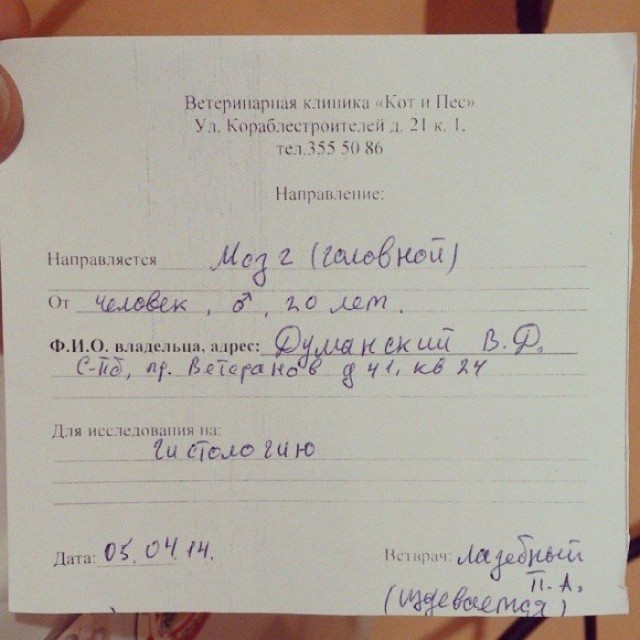 Ветеринарная клиника «Кот и Пес»
Ул. Кораблестроителей д. 21 к. 1,
тел.355 50 86
Направление:
Направляется Мозг (головной)
От человек, ♂, 20 лет.
Ф.И.О. владельца, адрес: Думанский В.Д.
С-Пб, пр. Ветеранов д 41, кв 24
Для исследования на:
гистологию
Дата: 05.04.14.
Ветврач: Лазебный
П.А.
(издевается)